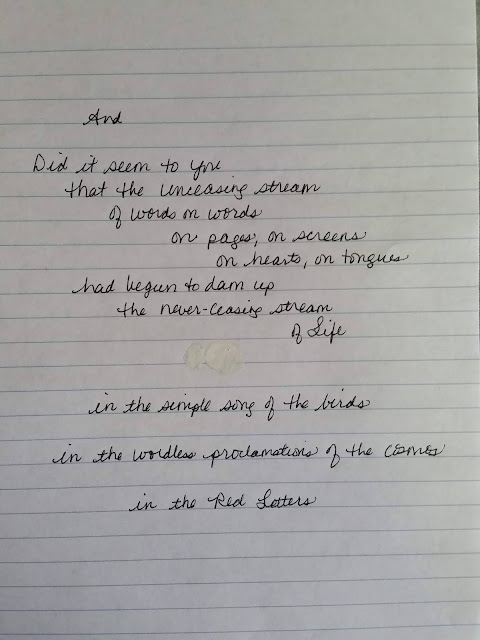 And
Did it seem to you
that the unceasing stream
of words on words
on pages, on screens
on hearts, on tongues
had begun to dam up
the never-ceasing stream
of Life
in the simple song of the birds
in the wordless proclamations of the cosmos
in the Red Letters